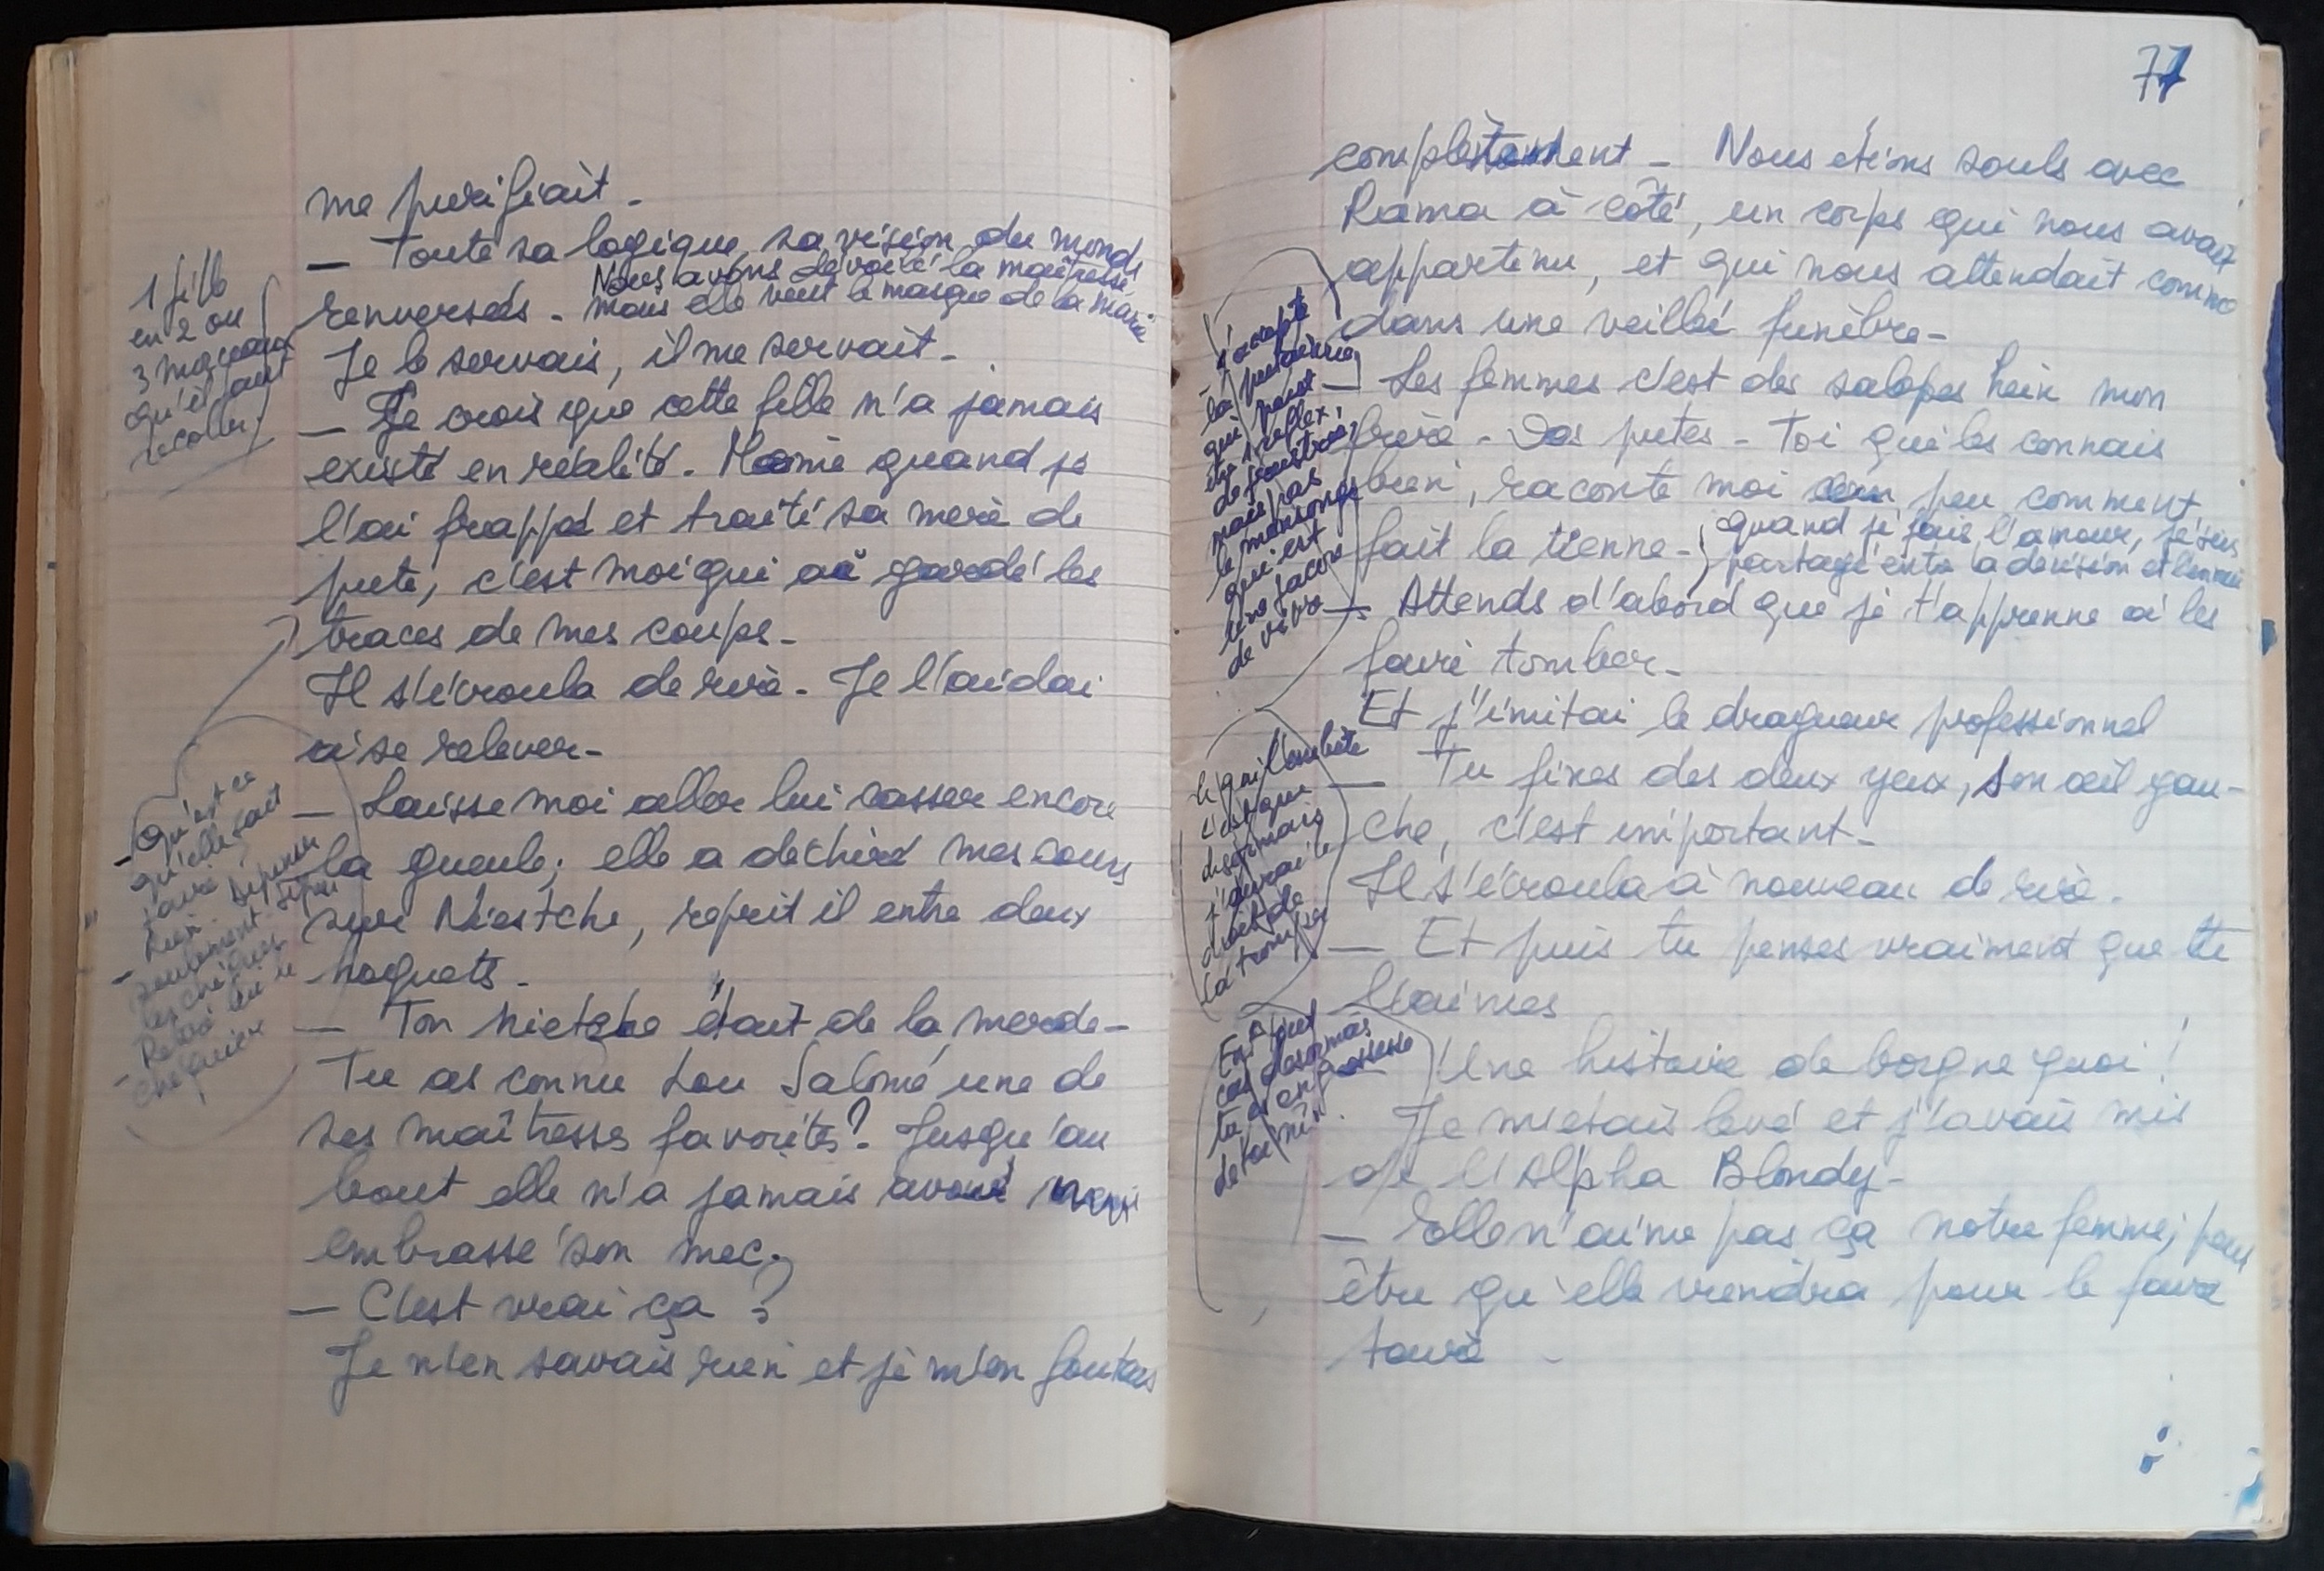 me purifiait -
- Toute sa logique, sa vision du monde
Nous avons dévoilé la maîtresse,
mais elle veut le masque de la mariée
renversés -
Je le servais, il me servait -
- Je crois que cette fille n'a jamais
existé en réalité. Même quand je
l'ai frappé et traité sa mère de
pute, c'est moi qui ai gardé les
traces de mes coups -
Il s'écroula de rire - Je l'aidai
à se relever -
- Laisse moi aller lui casser encore
la gueule; elle a dechiré mes cours
sur Niestche, reprit il entre deux
hoquets -
- Ton Nietche était de la merde -
Tu as connu Lou Salomé une de
ses maîtresses favorites? Jusqu'au
bout elle n'a jamais avoué avoir
embrassé son mec.
- C'est vrai ça ?
Je n'en savais rien et je m'en foutais
1 fille
en 2 ou
3 morceaux
qu'il faut
recoller.
- Qu'est ce
qu'elle sait
faire ?
- Rien
seulement
les chèques
- chéquier
77
complètement - Nous etions souls avec
Rama à côté, un corps qui nous avait
appartenu, et qui nous attendait comme
dans une veillée funèbre -
- Les femmes c'est des salopes hein mon
frère - Des putes - Toi qui les connais
bien, raconte moi un peu comment
fait la tienne -
quand je fais l'amour, je suis
partagé entre la derision et l'ennui
- Attends d'abord que je t'apprenne à les
faire tomber -
Et j'imitai le dragueur professionnel
- Tu fixes des deux yeux, son œil gau-
che, c'est important -
Il s'écroula à nouveau de rire.
- Et puis tu penses vraiment que tu
l'aimes
Une histoire de borgne quoi !
Je m'etais levé et j'avais mis
de l'Alpha Blondy -
- Elle n'aime pas ça notre femme; peut
être qu'elle viendra pour le faire
taire -
J'accepte
la putainerie
qui peut
être reflex,
mais pas
le mensonge
qui est
une facon
de vivre
Ce qui l'embête
c'est que
desormais
j'aurai le
droit de
la tromper
En tout
cas desormais
tu es en grossesse
de toi même.